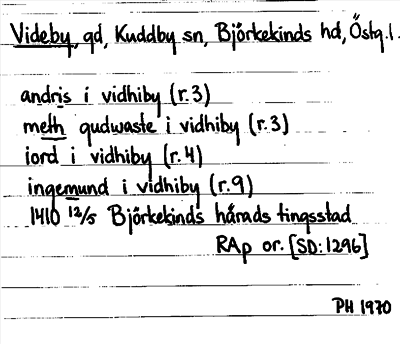 Videby, gd, Kuddby sn, Björkekinds hd, Östg.l.
andris i vidhiby (r.3)
meth gudwaste i vidhiby (r.3)
iord i vidhiby (r.4)
ingemund i vidhiby (r.9)
1410 12/5 Björkekinds härads tingsstad
RAp or. [SD:1296]
PH 1970